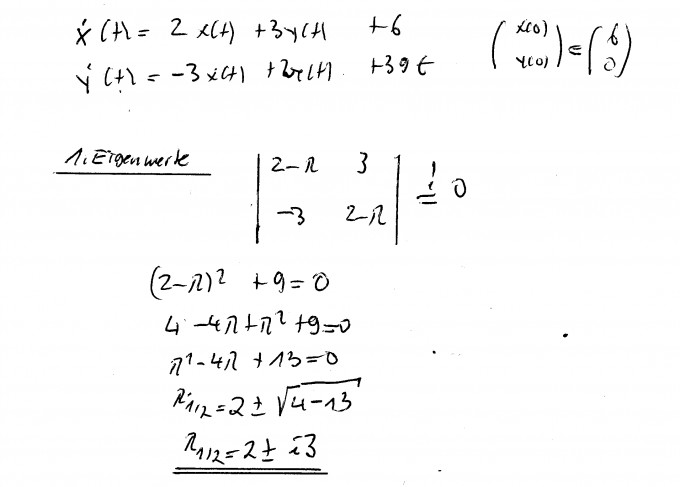 ẋ(t) = 2 x(t) + 3y(t) + 6
ẏ(t) = -3x(t) + 2y(t) + 39t
(x(0) y(0)) = (6 0)
1. Eigenwerke
|2-λ 3|
|-3 2-λ| != 0
(2-λ)² + 9 = 0
4 - 4λ + λ² + 9 = 0
λ² - 4λ + 13 = 0
λ1/2 = 2 ± √4-13
λ1/2 = 2 ± i3